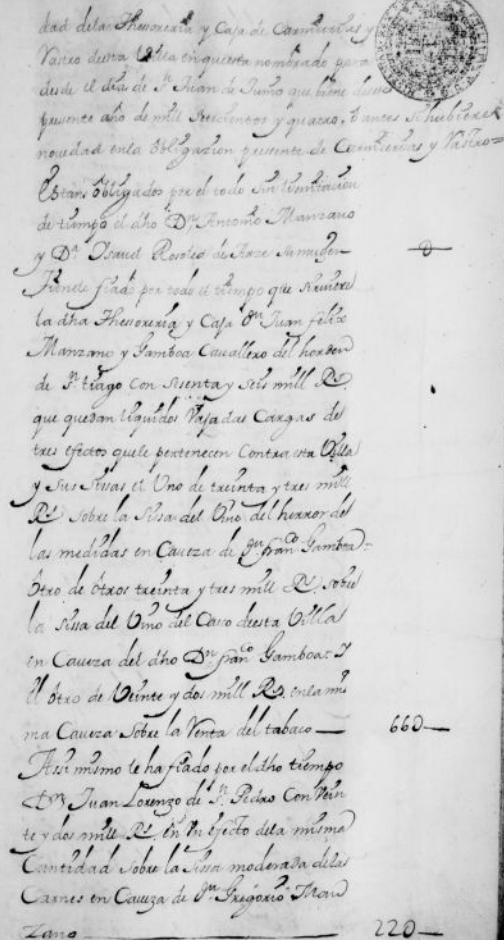 dad dela Thesoreria y Caja de Carnicerias y
Rastro desta Villa en questa nombrado para
desde el dia de Sn Juan de Junio que biene deste
presente año de mill Setecientos y quatro, o antes si hubiere
novedad enla obligazion presente de Carnicerias y Rastro=
Estan obligados por el todo sin limitacion
de tiempo el dho Dn Antonio Manzano
y Da Ysavel Rosales de Arze su muger
Tienele fiado por todo el tiempo que sirviere
la dha Thesoreria y Caja Dn Juan felix
Manzano y Gamboa Cavallero del horden
de Sn tiago con sesenta y seis mill Rs
que quedan liquidos vajadas Cargas de
tres efectos quele pertenecen Contra esta Villa
y Sus sisas el Uno de treinta y tres mill
Rs sobre la sissa del Vino del herror de
las medidas en Caveza de Dn franco Gamboa=
Otro de otros treinta y tres mill Rs sobre
la sissa del Vino del Caso desta Villa
en Caveza del dho Dn franco Gamboa= Y
el otro de Veinte y dos mill Rs enla mis
ma Caveza Sobre la Venta del tabaco — 66D—
Assi mismo le ha fiado por el dho tiempo
Dn Juan Lorenzo de Sn Pedro Con vein
te y dos mill Rs en un efecto dela misma
Cantidad sobre la sissa moderada delas
Carnes en Caveza de Dn Gregorio Man
zano — 22D—